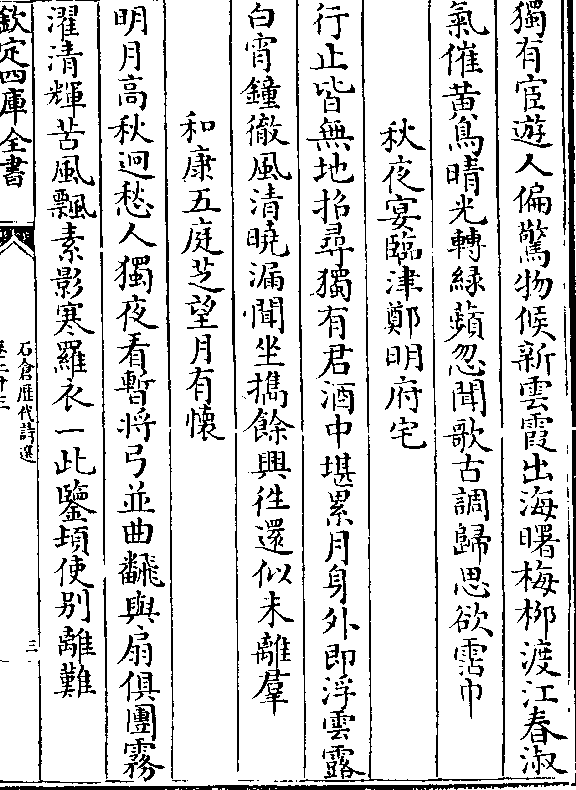 獨有宦遊人偏驚物候新雲霞出海曙梅柳渡江春淑
氣催黄鳥晴光轉緑蘋忽聞歌古調歸思欲霑巾
秋夜宴臨津鄭明府宅
行止皆無地招尋獨有君酒中堪累月身外即浮雲露
白宵鐘徹風清曉漏聞坐攜餘興徃還似未離羣
和康五庭芝望月有懷
明月高秋迥愁人獨夜看暫將弓並曲飜與扇俱團霧
濯清輝苦風飄素影寒羅衣一此鑒頊使别離難
欽定四庫全書
石倉歴代詩選
卷二十三
三